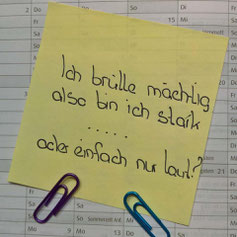 Ich brülle mächtig
also bin ich stark
.....
oder einfach nur laut?